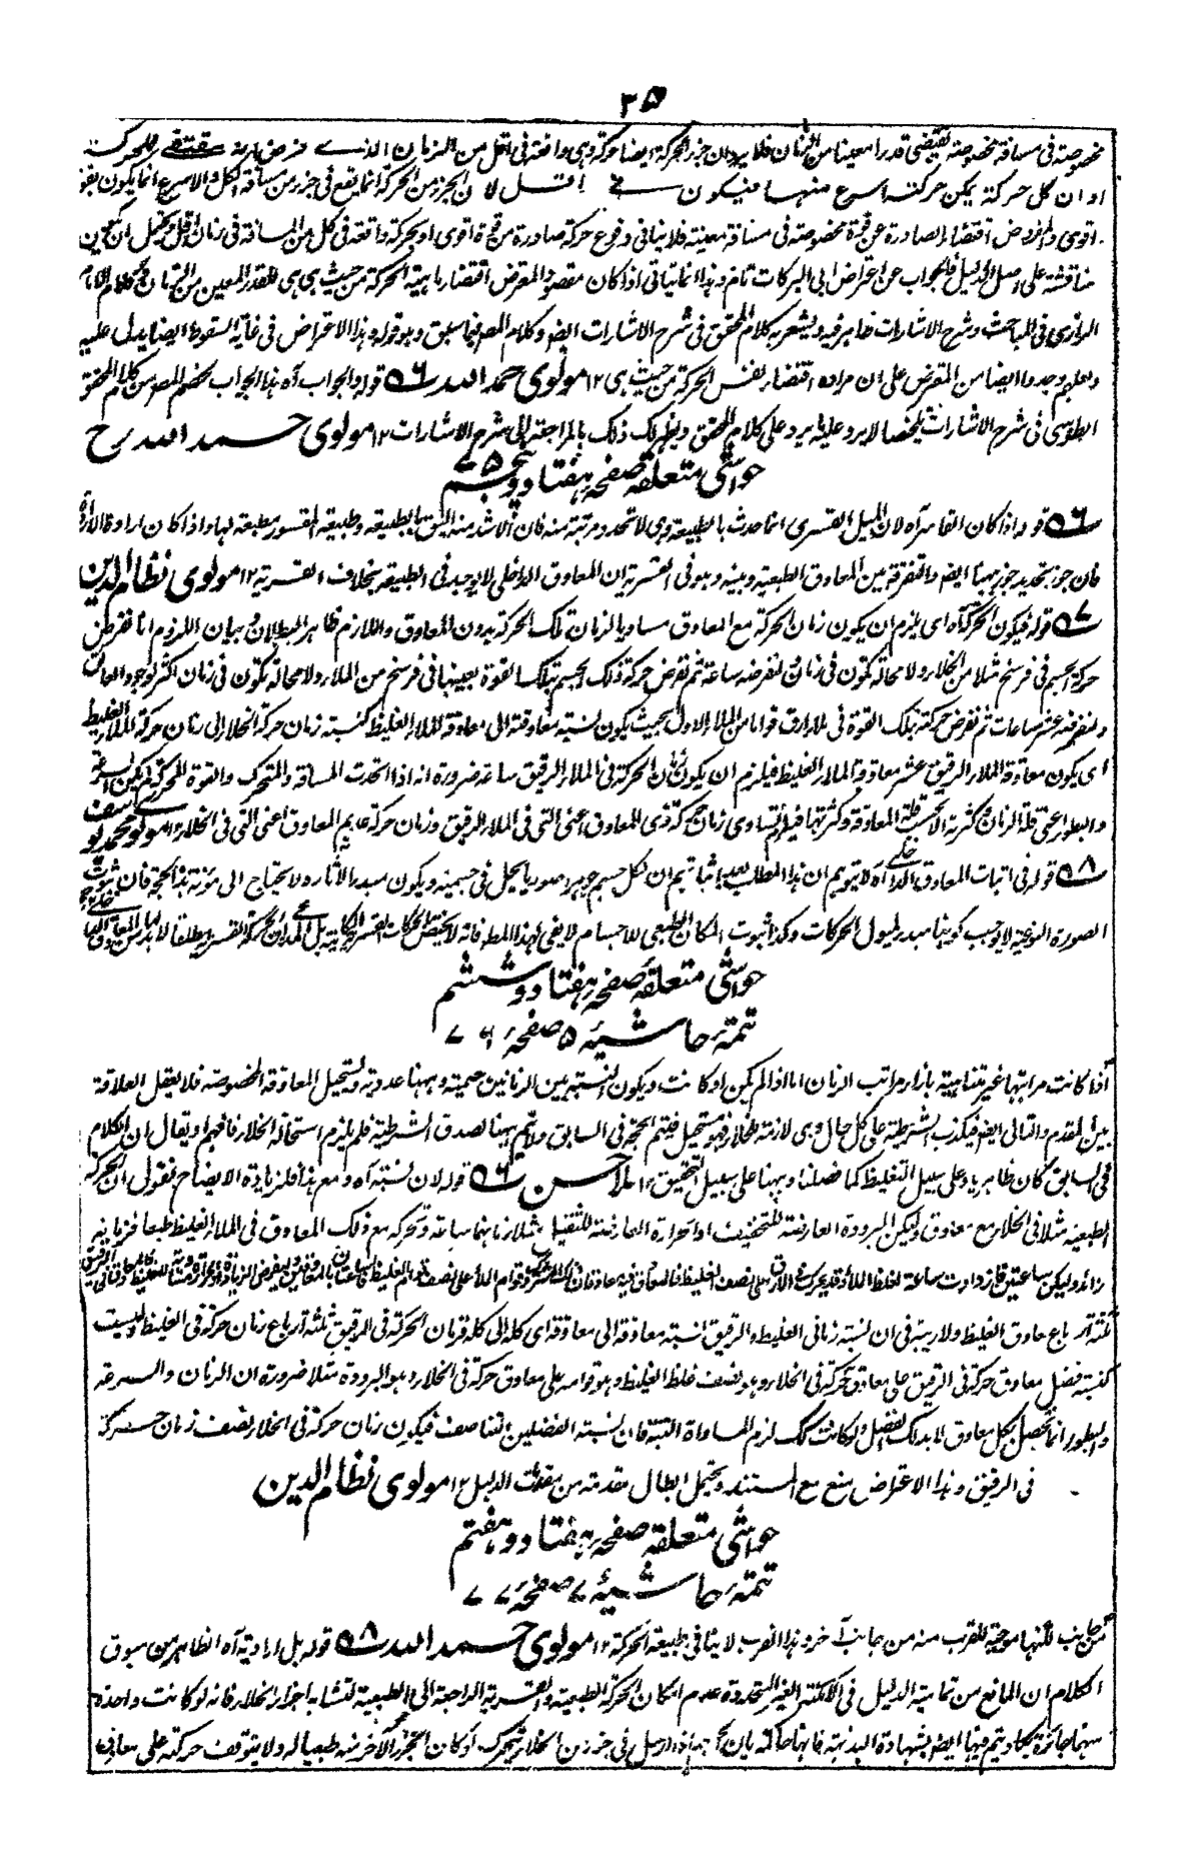 ٣٥
مخصوصة فى مسافة مخصوصة يقتضى قدرا معينا من الزمان فلا يرد ان جزء الحركة ايضا حركة وهى واقعة فى اقل من الزمان الذى فرض انه مقتضى للحركة
او ان كل حركة يمكن حركة اسرع منها فيكون فى اقل لان الجزء من الحركة انما يقع فى جزء من مسافة الكل والاسرع انما يكون بقوة
اقوى والمفروض اقتضاء الصادرة عن قوة مخصوصة فى مسافة معينة فلا ينافى وقوع حركة صادرة من قوة اقوى او بحركة واقعة فى كل من المسافة فى زمان اقل
مناقشة على اصل الدليل فالجواب عن اعتراض ابى البركات تام وهذا انما يتاتى اذا كان مقصود المعترض اقتضاء ماهية الحركة من حيث هى هى للقدر المعين من الزمان كلام الامام
الرازى فى المباحث وشرح الاشارات ظاهر فيه ويشعر به كلام المحقق فى شرح الاشارات ايضا وكلام المصنف فيما سبق وهو قوله وهذا الاعتراض فى غاية السقوط ايضا يدل عليه
ولعلهم وجدوا ايضا من المعترض على ان مراده اقتضاء نفس الحركة من حيث هى ١٢ مولوى حمد الله ٥٦ قوله والجواب آه هذا الجواب من كلام المحقق
الطوسى فى شرح الاشارات تلخيصا لا يرد عليه ما يرد على كلام المحقق ويظهر لك ذلك بالمراجعة الى شرح الاشارات ١٢ مولوى حمد الله رح
حواشى متعلقه صفحه هفتاد و پنجم ٧٥
٥٦ قوله اذا كان القاسر آه لان الميل القسرى انما حدث بالطبيعة وهى لا تتحدد مرتبة منه فان الاشد منه اليق بالطبيعة وطبيعة المقسور مطيعة لها واذا كان
فان جوز تحديد جوز ههنا ايضا والتفرقة بين المعاوق الطبيعية وبينه وهو فى القسرية ان المعاوق الداخلى لا يوجد فى الطبيعية بخلاف القسرية ١٢ مولوى نظام الدين
٥٧ قوله فيكون الحركة آه اى يلزم ان يكون زمان الحركة مع المعاوق مساويا لزمان تلك الحركة بدون المعاوق واللازم ظاهر البطلان وبيان اللزوم انا نفرض
حركة جسم فى فرسخ مثلا من الخلاء ولا محالة تكون فى زمان نفرضه ساعة ثم نفرض حركة ذلك الجسم بتلك القوة بعينها فى فرسخ من الملاء ولا محالة تكون فى زمان اكثر لوجود المعاوق
ولنفرضه عشر ساعات ثم نفرض حركته بتلك القوة فى ملاء ارق قواما من الملاء الاول بحيث يكون نسبة معاوقته الى معاوقة الملاء الغليظ كنسبة زمان حركة الخلاء الى زمان حركة الملاء الغليظ
اى يكون معاوقة الملاء الرقيق عشر معاوقة الملاء الغليظ فيلزم ان يكون زمان الحركة فى الملاء الرقيق ساعة ضرورة انه اذا اتحدت المسافة والمتحرك والقوة المحركة لم يكن السرعة
والبطوء اعنى قلة الزمان وكثرته الا بحسب قلة المعاوقة وكثرتها فيلزم تساوى زمان حركة ذى المعاوق اعنى التى فى الملاء الرقيق وزمان حركة عديم المعاوق اعنى التى فى الخلاء ١٢ مولوى محمد يوسف
٥٨ قوله فى اثبات المعاوق الداخلى آه لا يتوهم ان هذا المطلب بعد اثباتهم ان لكل جسم جوهرا صوريا يحل فى جسميته ويكون مبدء لآثاره لا يحتاج الى مؤنة هذا الحجة فان ثبوت
الصورة النوعية لا يوجب كونها مبدء لميول الحركات وكذا ثبوت المكان الطبيعى للاجسام لا يفى بهذا المطلب فانه لا يختص الحركات القسرية بل المدعى ان الحركة القسرية مطلقا لا بد لها من المعاوق الداخلى
حواشى متعلقه صفحه هفتاد و ششم
تتمه حاشيه ٥ صفحه ٧٦
اذا كانت مراتبها غير متناهية بازاء مراتب الزمان اما اذا لم يكن او كانت ويكون النسبة بين الزمانين صمية وههنا عددية ويستحيل المعاوقة المخصوصة فلا يعقل العلاقة
بين المقدم والتالى ايضا فيكذب الشرطية على كل حال وهى لازمة للخلاء فهو مستحيل فيتم الحجة فى السابق ولا يتم ههنا لصدق الشرطية فلم يلزم استحالة الخلاء فافهم او يقال ان الكلام
فى السابق كان ظاهريا وعلى سبيل التغليظ كما فصلنا وههنا على سبيل التحقيق ١٢ ملا حسن ٥٦ قوله لان نسبة آه ومع هذا فلزيادة الايضاح نقول ان الحركة
الطبعية مثلا فى الخلاء مع معاوق وليكن البرودة العارضة للخفيف او الحرارة العارضة للثقيل مثلا زمانهما ساعة وتحركه مع ذلك المعاوق فى الملاء الغليظ طبعا فزمانه
زائد وليكن ساعتين
ثلثة ارباع معاوق الغليظ ولا ريبة فى ان نسبة زمانى الغليظ والرقيق نسبة معاوقة الى معاوقة اى كله الى كله فزمان الحركة فى الرقيق ثلثة ارباع زمان حركة فى الغليظ وليست
كنسبة فضل معاوق حركة فى الرقيق على معاوق حركة فى الخلاء وهو نصف غلظ الغليظ وهو قوامه على معاوق حركة فى الخلاء وهو البرودة مثلا ضرورة ان الزمان والسرعة
والبطوء انما يحصل بكل معاوق لا بذلك الفضل ولو كانت كك لزم المساواة البتة فان نسبة الفضلين التناصف فيكون زمان حركة فى الخلاء نصف زمان حركة
فى الرقيق وهذا الاعتراض منع مع المستند ويحتمل ابطال مقدمة من مقدمات الدليل ١٢ مولوى نظام الدين
حواشى متعلقه صفحه هفتاد و هفتم
تتمه حاشيه ٧ صفحه ٧٧
من جانب لكنها موجبة للقرب منه من جانب آخر وهذا القرب لا ينافى طبيعة الحركة ١٢ مولوى حمد الله ٥٨ قوله بل ارادية آه الظاهر من سوق
الكلام ان المانع من تمامية الدليل فى الامكنة الغير المتحددة عدم امكان الحركة الطبيعية والقسرية الراجعة الى الطبيعية لتشابه اجزاء الخلاء فانه لو كانت واحدة
منهما جائزة يكاد يتم فيها ايضا بشهادة البديهة فانها حاكمة بان الحجر اذا ارسل فى جزء من الخلاء يتحرك او كان الجزء الآخر منه طبعيا له ولا يتوقف حركته على معاق